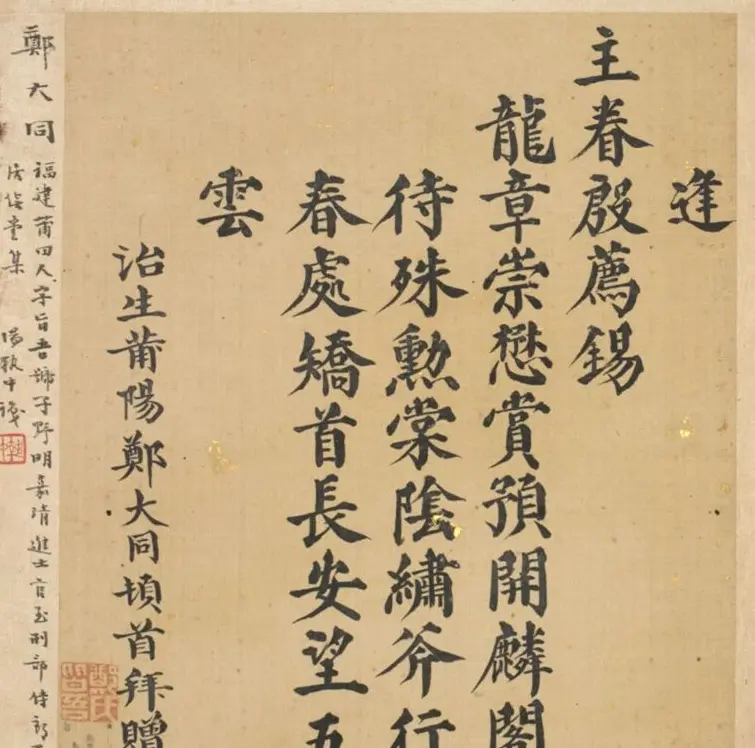 進
主眷殷薦錫
龍章崇懋賞預開麟閣
待殊勳棠陰繡斧行
春處矯首長安望五
雲
治生莆陽鄭大同頓首拜贈
鄭大同
福建莆田人字旨吾號子野明嘉靖進士官至刑部侍郎
集